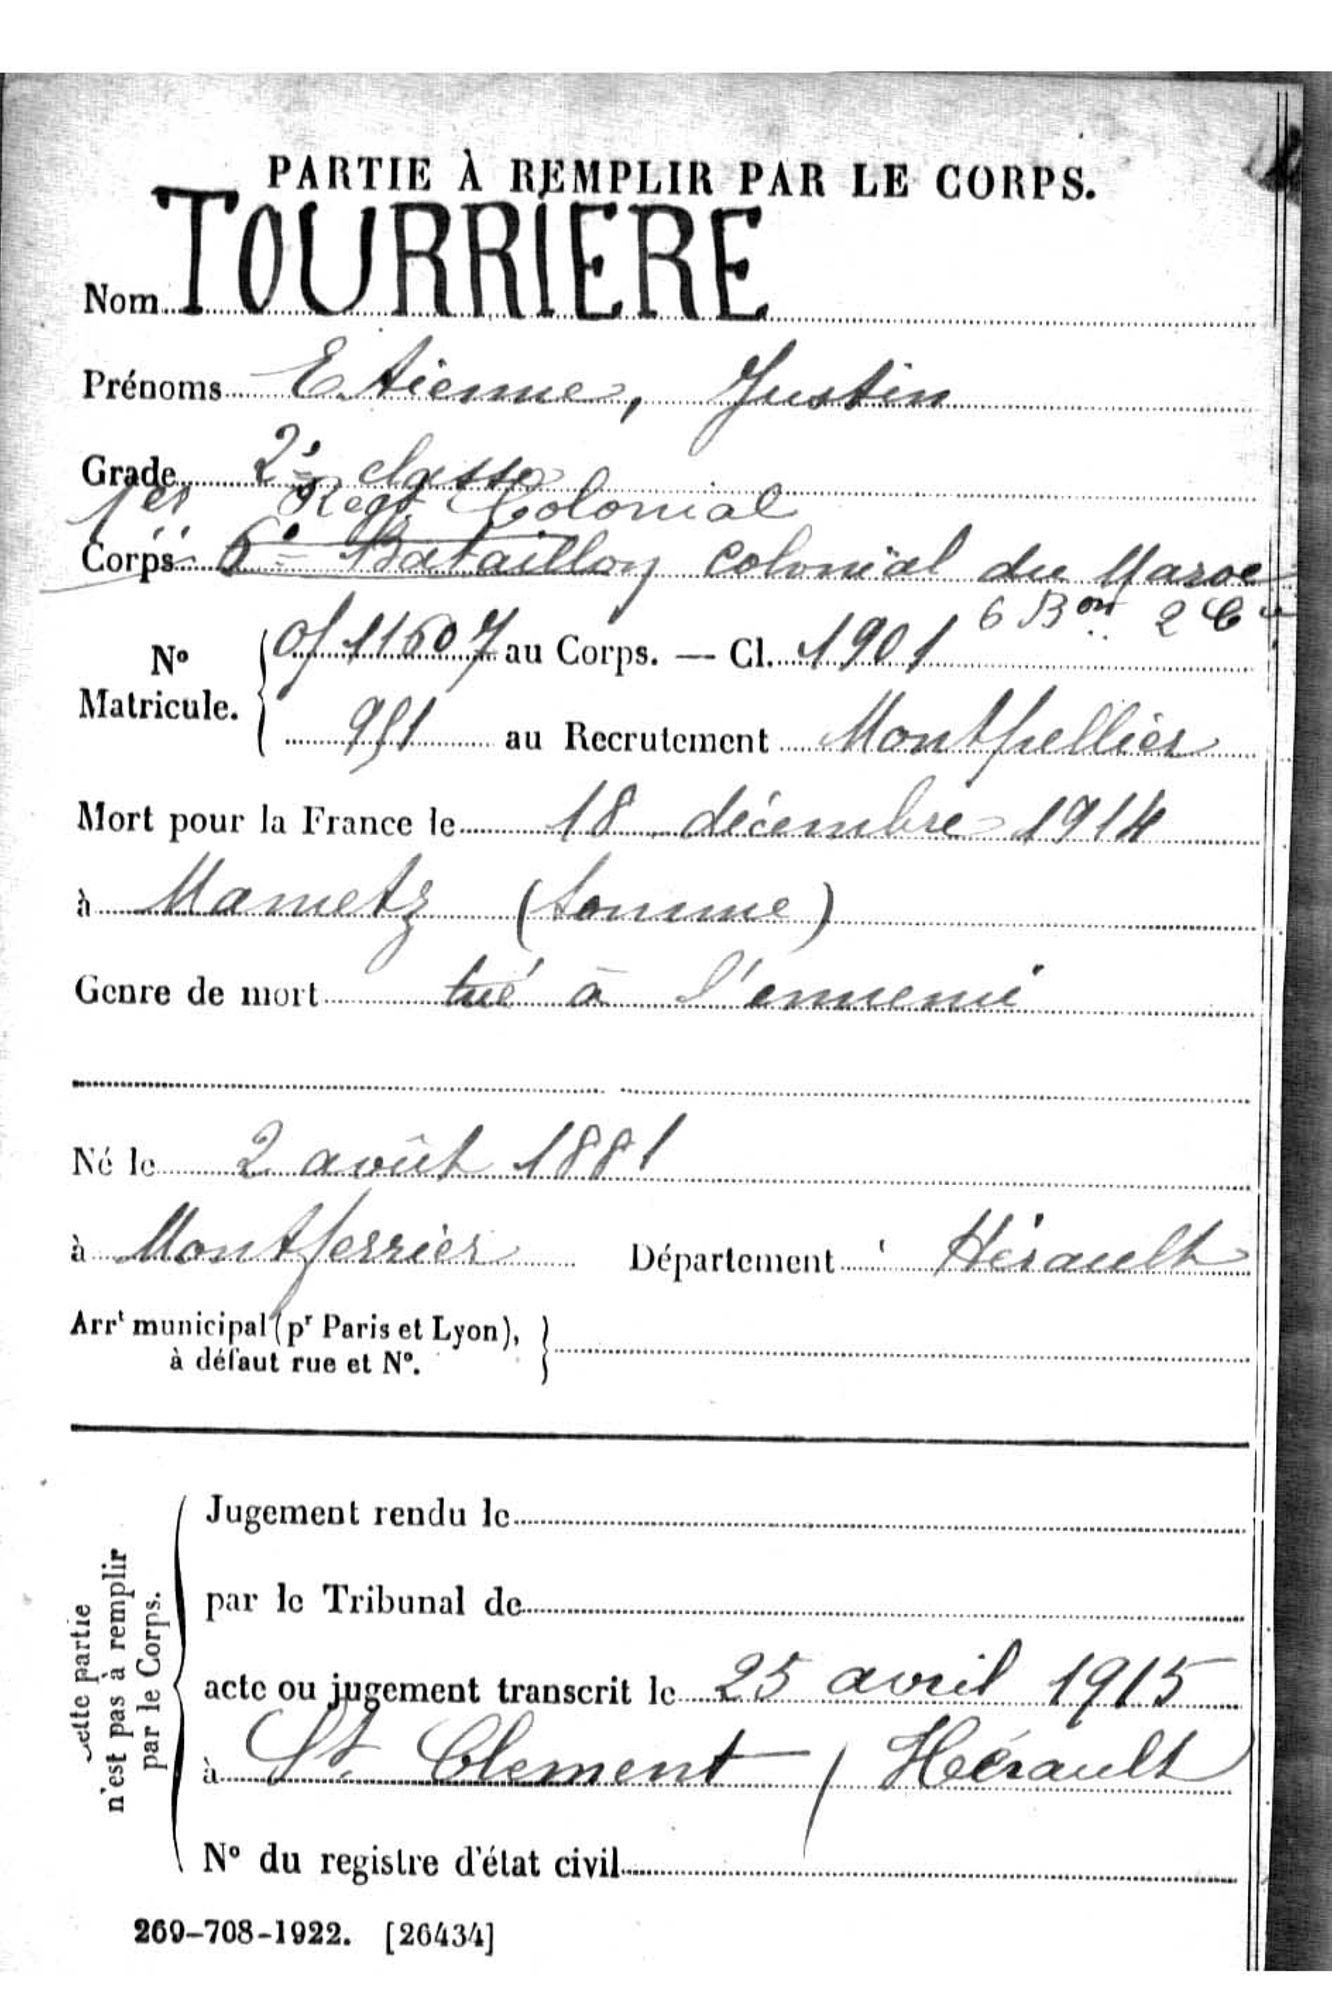 PARTIE À REMPLIR PAR LE CORPS.
Nom TOURRIERE
Prénoms Etienne, Justin
Grade 2e classe
1er Regt Colonial
Corps 6e Bataillon colonial du Maroc
6 Bon 2 Cie
No Matricule. 0/11607 au Corps. — Cl. 1901
991 au Recrutement Montpellier
Mort pour la France le 18 décembre 1914
à Mametz (Somme)
Genre de mort tué à l'ennemi
Né le 2 août 1881
à Montferrier Département Hérault
Arrt municipal (pr Paris et Lyon),
à défaut rue et No.
Cette partie
n'est pas à remplir
par le Corps.
Jugement rendu le
par le Tribunal de
acte ou jugement transcrit le 25 avril 1915
à St. Clement / Hérault
No du registre d'état civil
269-708-1922. [26434]